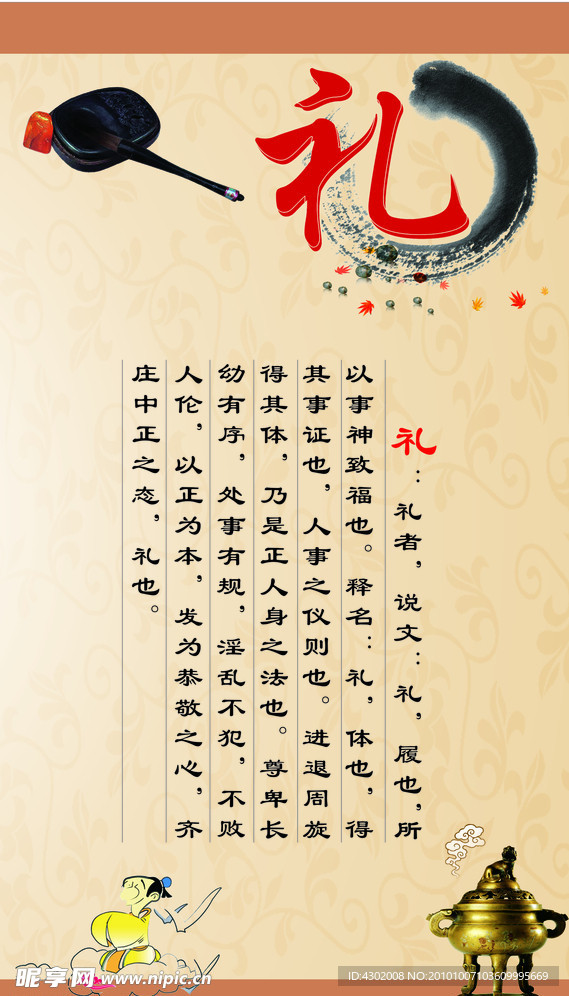 礼
礼：礼者，说文：礼，履也，所
以事神致福也。释名：礼，体也，得
其事证也，人事之仪则也。进退周旋
得其体，乃是正人身之法也。尊卑长
幼有序，处事有规，淫乱不犯，不败
人伦，以正为本，发为恭敬之心，齐
庄中正之态，礼也。
昵享网 www.nipic.cn
ID:4302008 NO:20101007103609995669